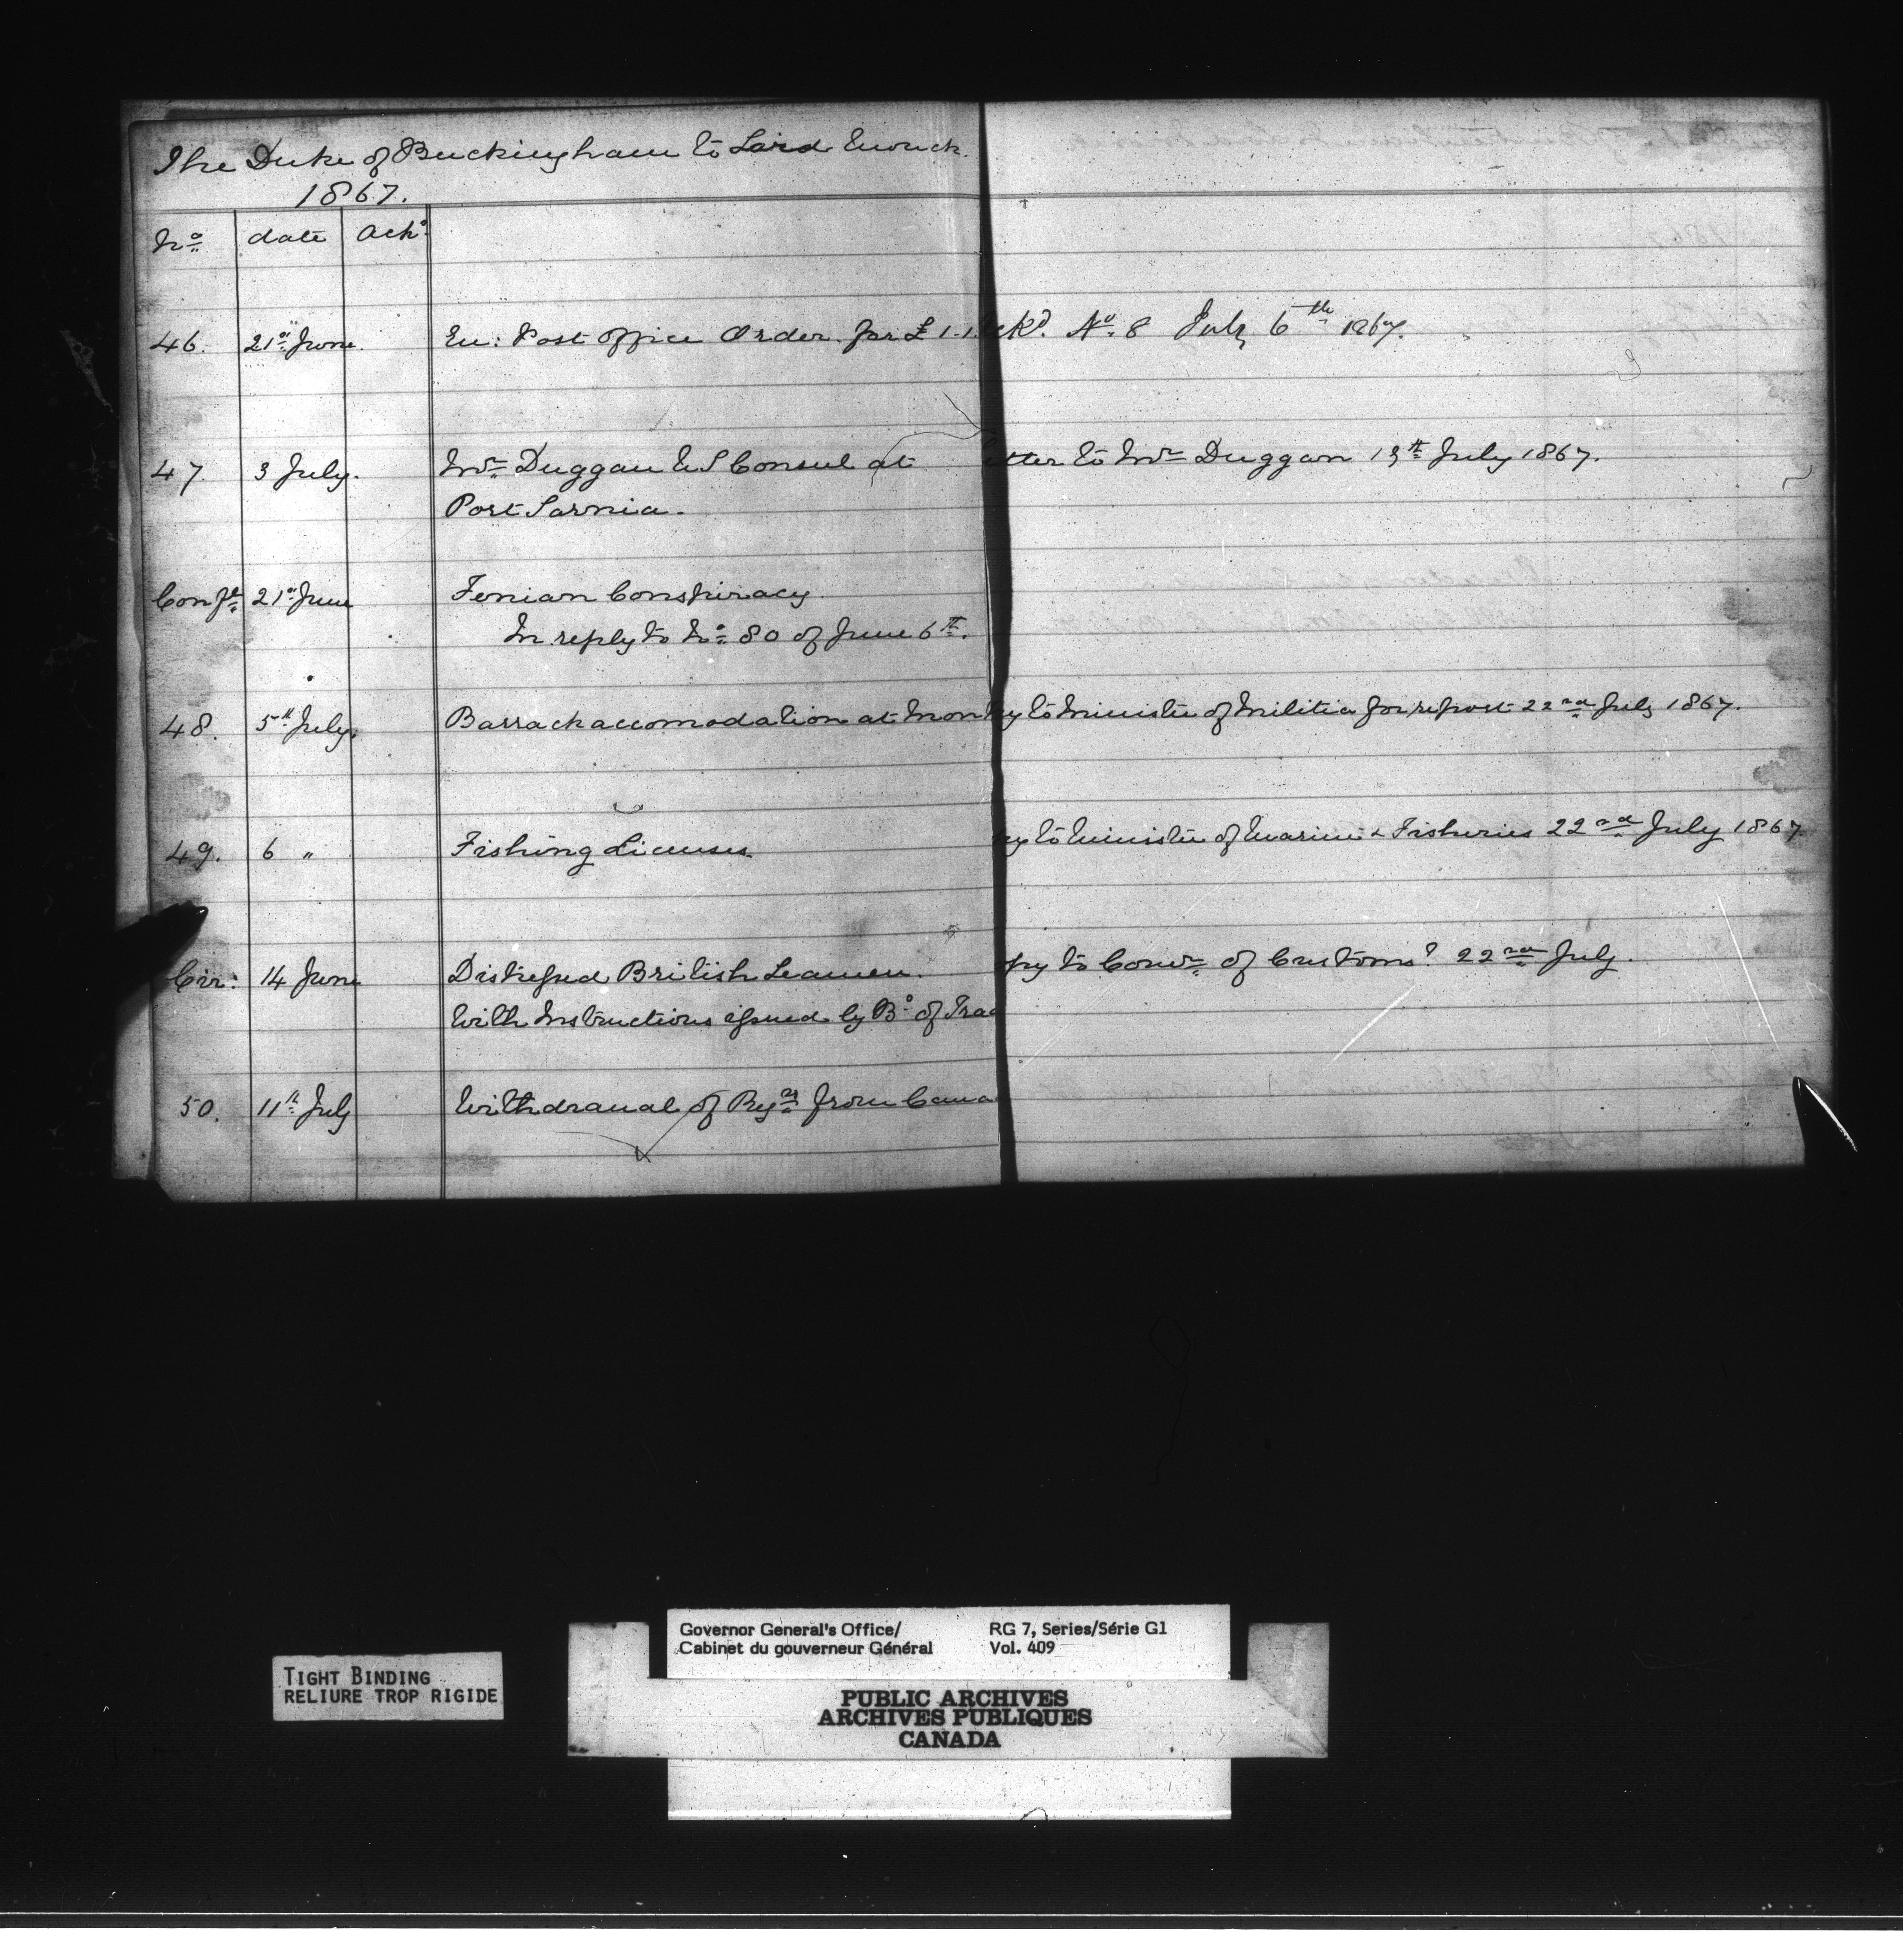 The Duke of Buckingham to Lord Monck.
1867.
No date Ackd
46. 21st June. En: Post Office Order for £ 1-1. ckd. No. 8 July 6th 1867.
47. 3 July. Mr Duggan U S Consul at etter to Mr Duggan 13th July 1867.
Port Sarnia.
Confl 21st June Fenian Conspiracy
In reply to No 80 of June 6th.
48. 5th July. Barrack accomodation at Mon py to Minister of Militia for report 22nd July 1867.
49. 6 " Fishing Licenses. py to Minister of Marine & Fisheries 22nd July 1867
Cir: 14 June Distressed British Seamen. opy to Comr of Customs 22nd July.
With Instructions issued by Bd of Trad
50. 11th July Withdrawal of from Cana
TIGHT BINDING
RELIURE TROP RIGIDE
Governor General's Office/ RG 7, Series/Série G1
Cabinet du gouverneur Général Vol. 409
PUBLIC ARCHIVES
ARCHIVES PUBLIQUES
CANADA